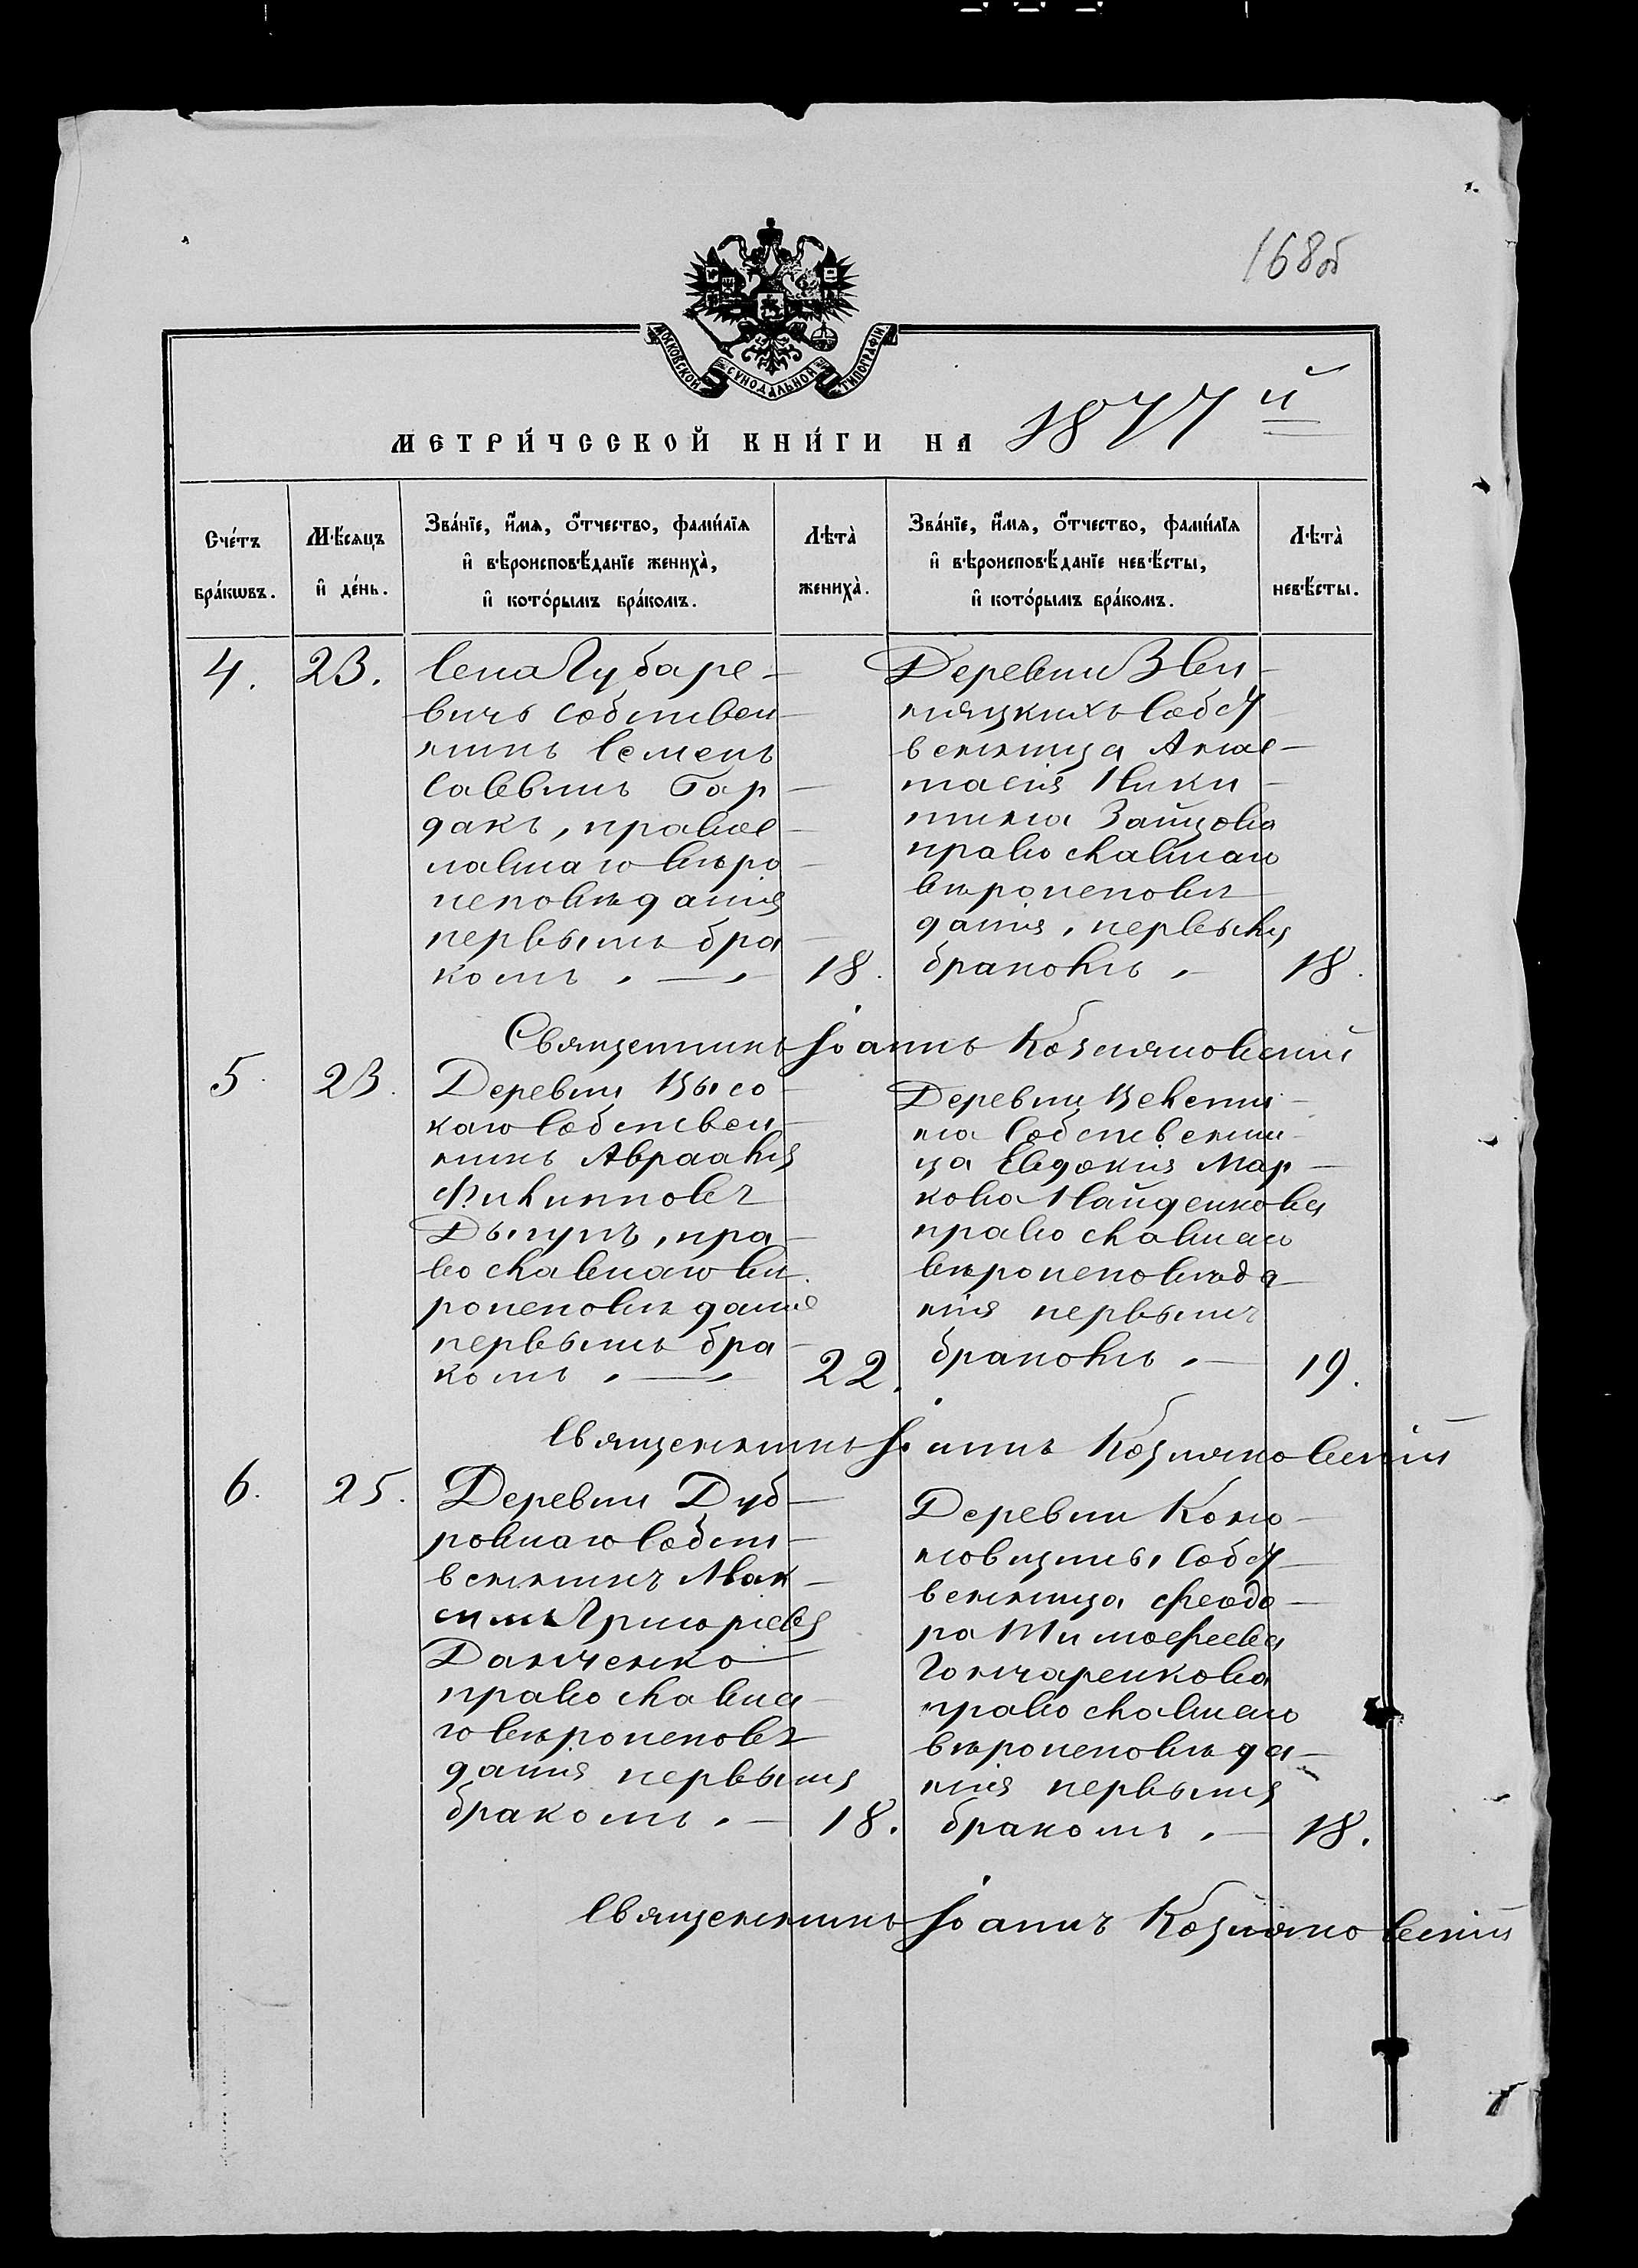 168об
МОСКОВСКОЙ СѴНОДАЛЬНОЙ ТИПОГРАФІИ
МЕТРИ́ЧЕСКОЙ КНИ́ГИ НА 1877й
Сче́тъ бра́кѡвъ.
Мѣ́сѧцъ и҆ де́нь.
Зва́нїе, и҆́мѧ, о҆́тчество, фами́лїѧ
и҆ вѣроисповѣ́данїе жениха̀,
и҆ кото́рымъ бра́комъ.
Лѣта̀ жениха̀.
Зва́нїе, и҆́мѧ, о҆́тчество, фами́лїѧ
и҆ вѣроисповѣ́данїе невѣ́сты,
и҆ кото́рымъ бра́комъ.
Лѣта̀ невѣ́сты.
4. 23.
Села Губаре-
вичь собствен-
никъ Семенъ
Саввинъ Бар-
дакъ, правос-
лавнаго вѣро-
исповѣданія
первымъ бра-
комъ. 18.
Деревни Зви-
няцкихъ Собст-
венница Анас-
тасія Ники-
тина Зайцова
православнаго
вѣроисповѣ-
данія, первымъ
бракомъ. 18.
Священникъ Іоаннъ Козляковскій
5. 23.
Деревни Высо-
каго Собствен-
никъ Авраамъ
Филипповъ
Дыгунъ, пра-
вославнаго вѣ-
роисповѣданія
первымъ бра-
комъ. 22.
Деревни
на Собственни-
ца Евдокія Мар-
кова Найденкова
православнаго
вѣроисповѣда-
нія первымъ
бракомъ. 19.
Священникъ Іоаннъ Козляковскій
6. 25.
Деревни Дуб-
ровнаго Собст-
венникъ Мак-
симъ Григоріевъ
Данченко
православна-
го вѣроисповѣ-
данія первымъ
бракомъ. 18.
Деревни Коно-
новщины Собст-
венница Феодо-
ра Тимофеева
Гончаренкова
православнаго
вѣроисповѣда-
нія первымъ
бракомъ. 18.
Священникъ Іоаннъ Козляковскій